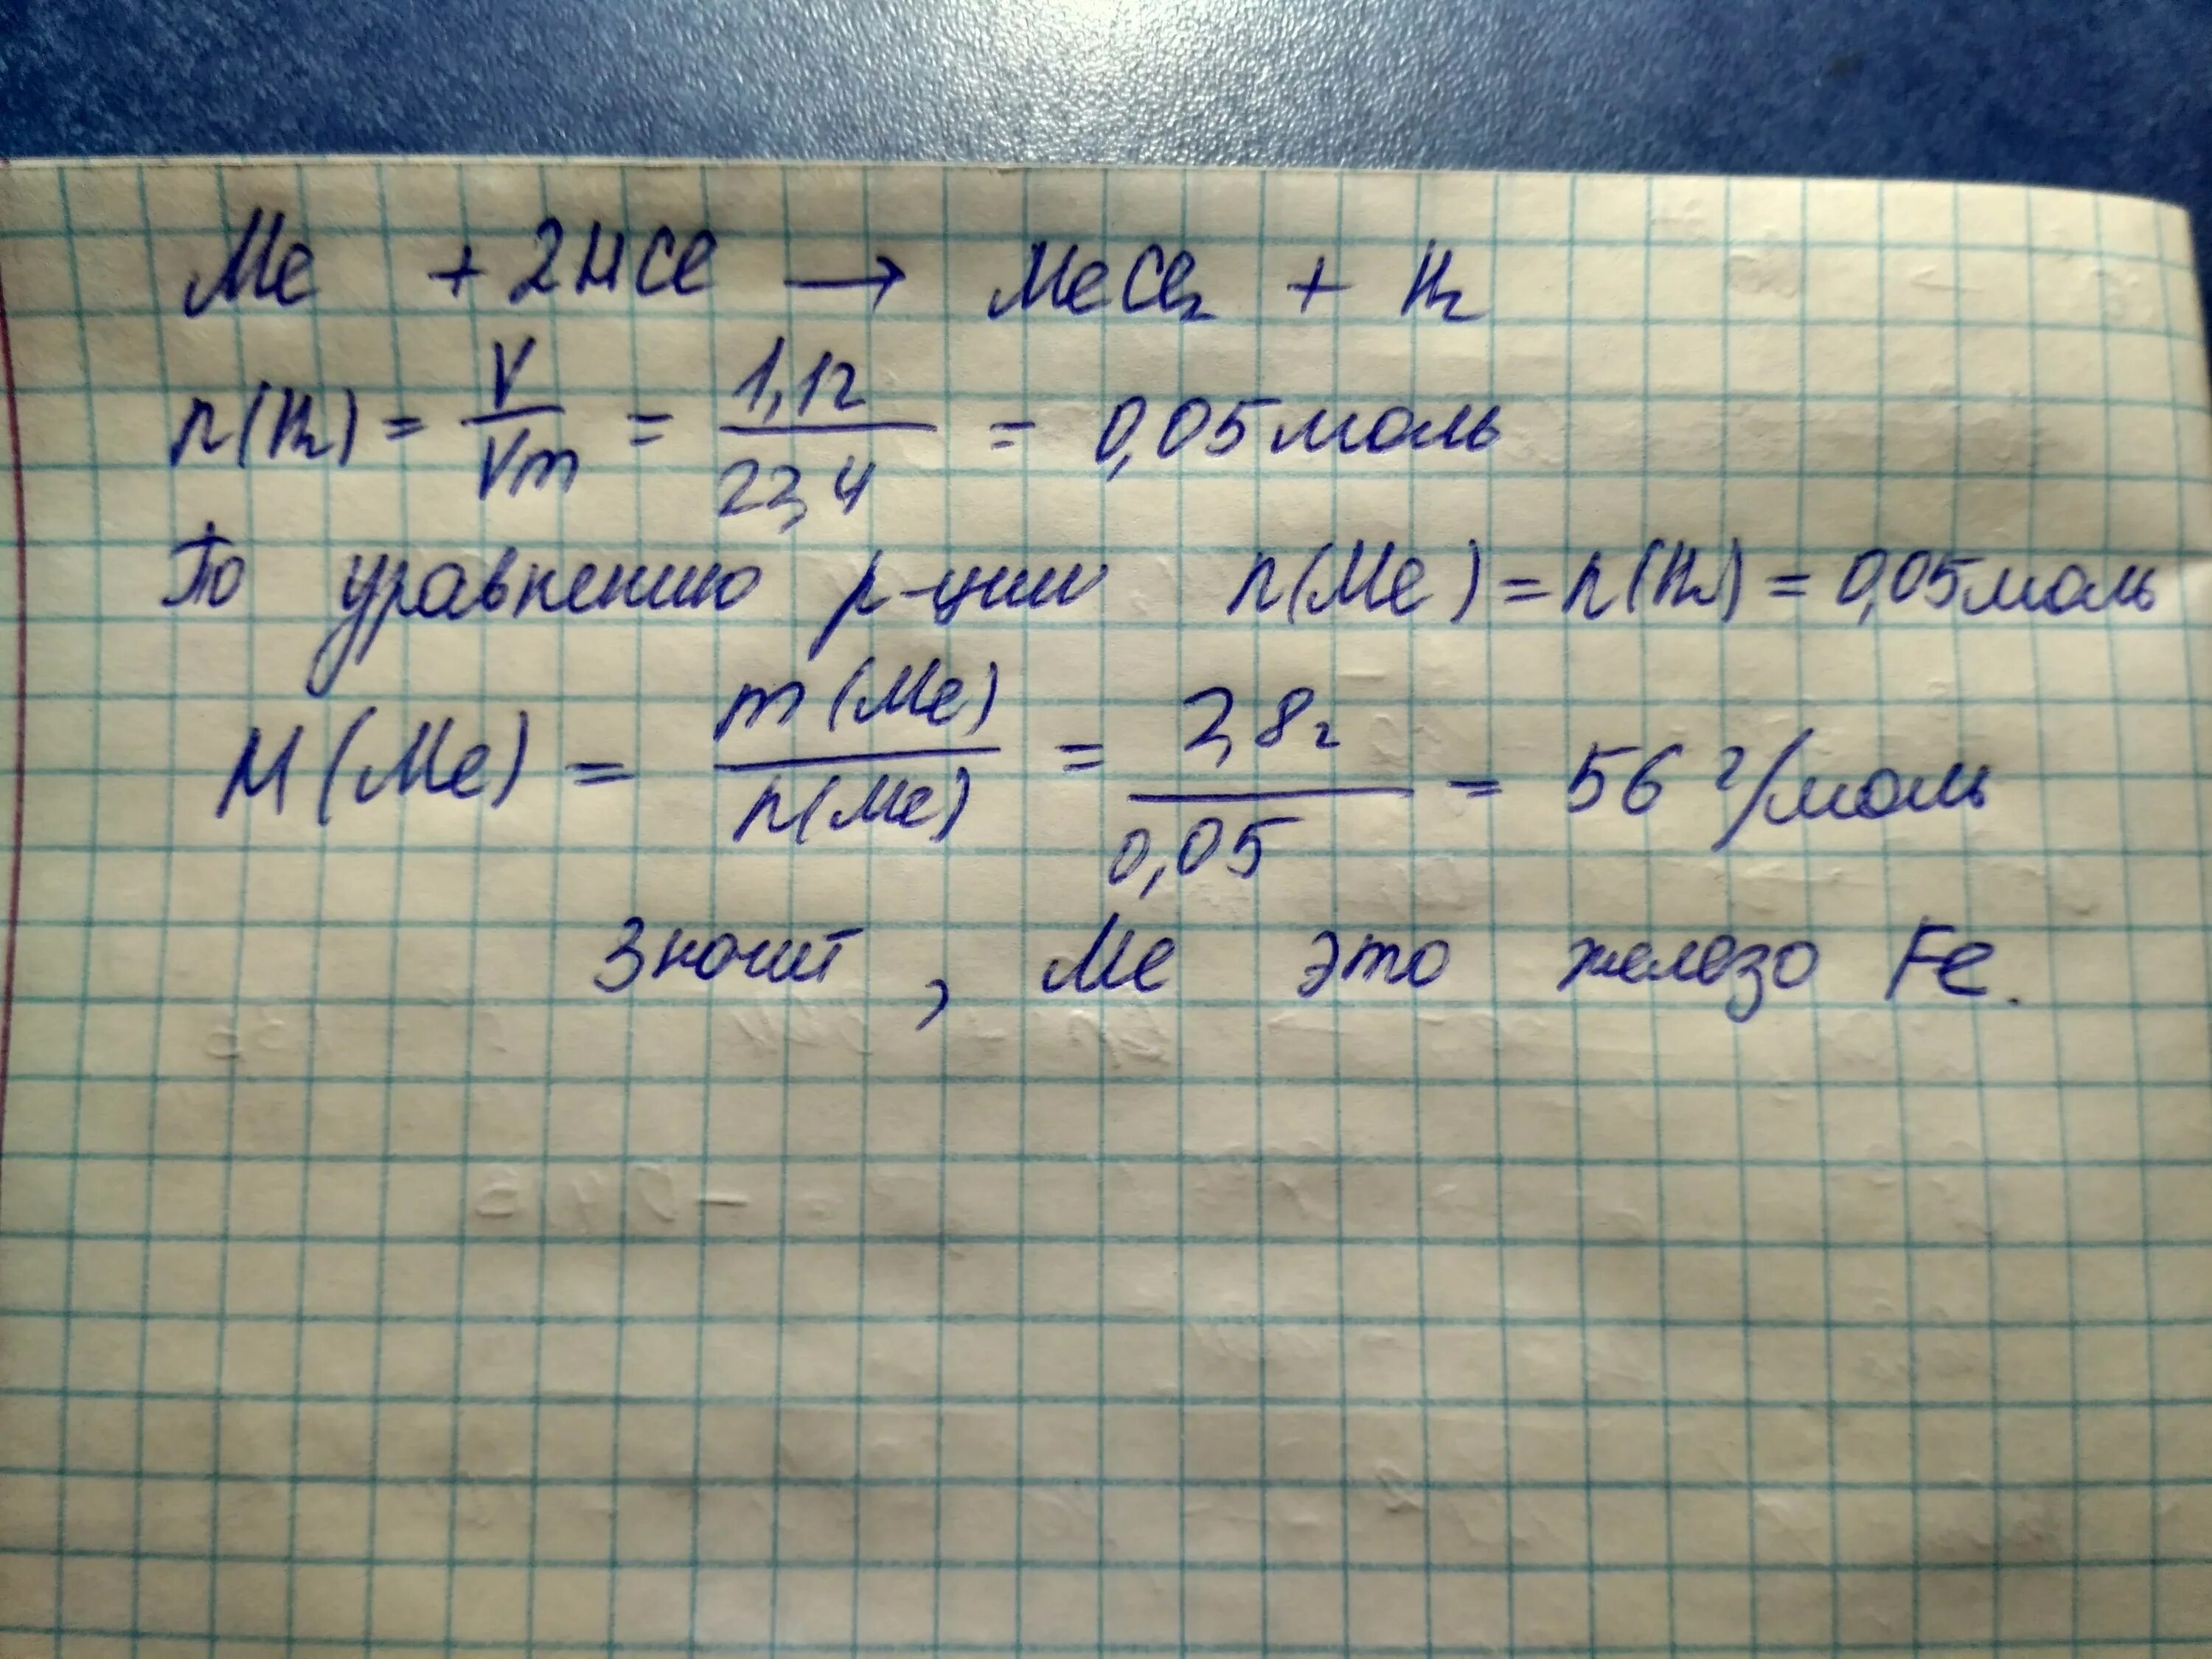 Me + 2HCl → MeCl₂ + H₂
n(H₂) = V/Vm = 1,12/22,4 = 0,05 моль
По уравнению р-ции n(Me) = n(H₂) = 0,05 моль
M(Me) = m(Me)/n(Me) = 2,8г/0,05 = 56 г/моль
Значит, Me это железо Fe.